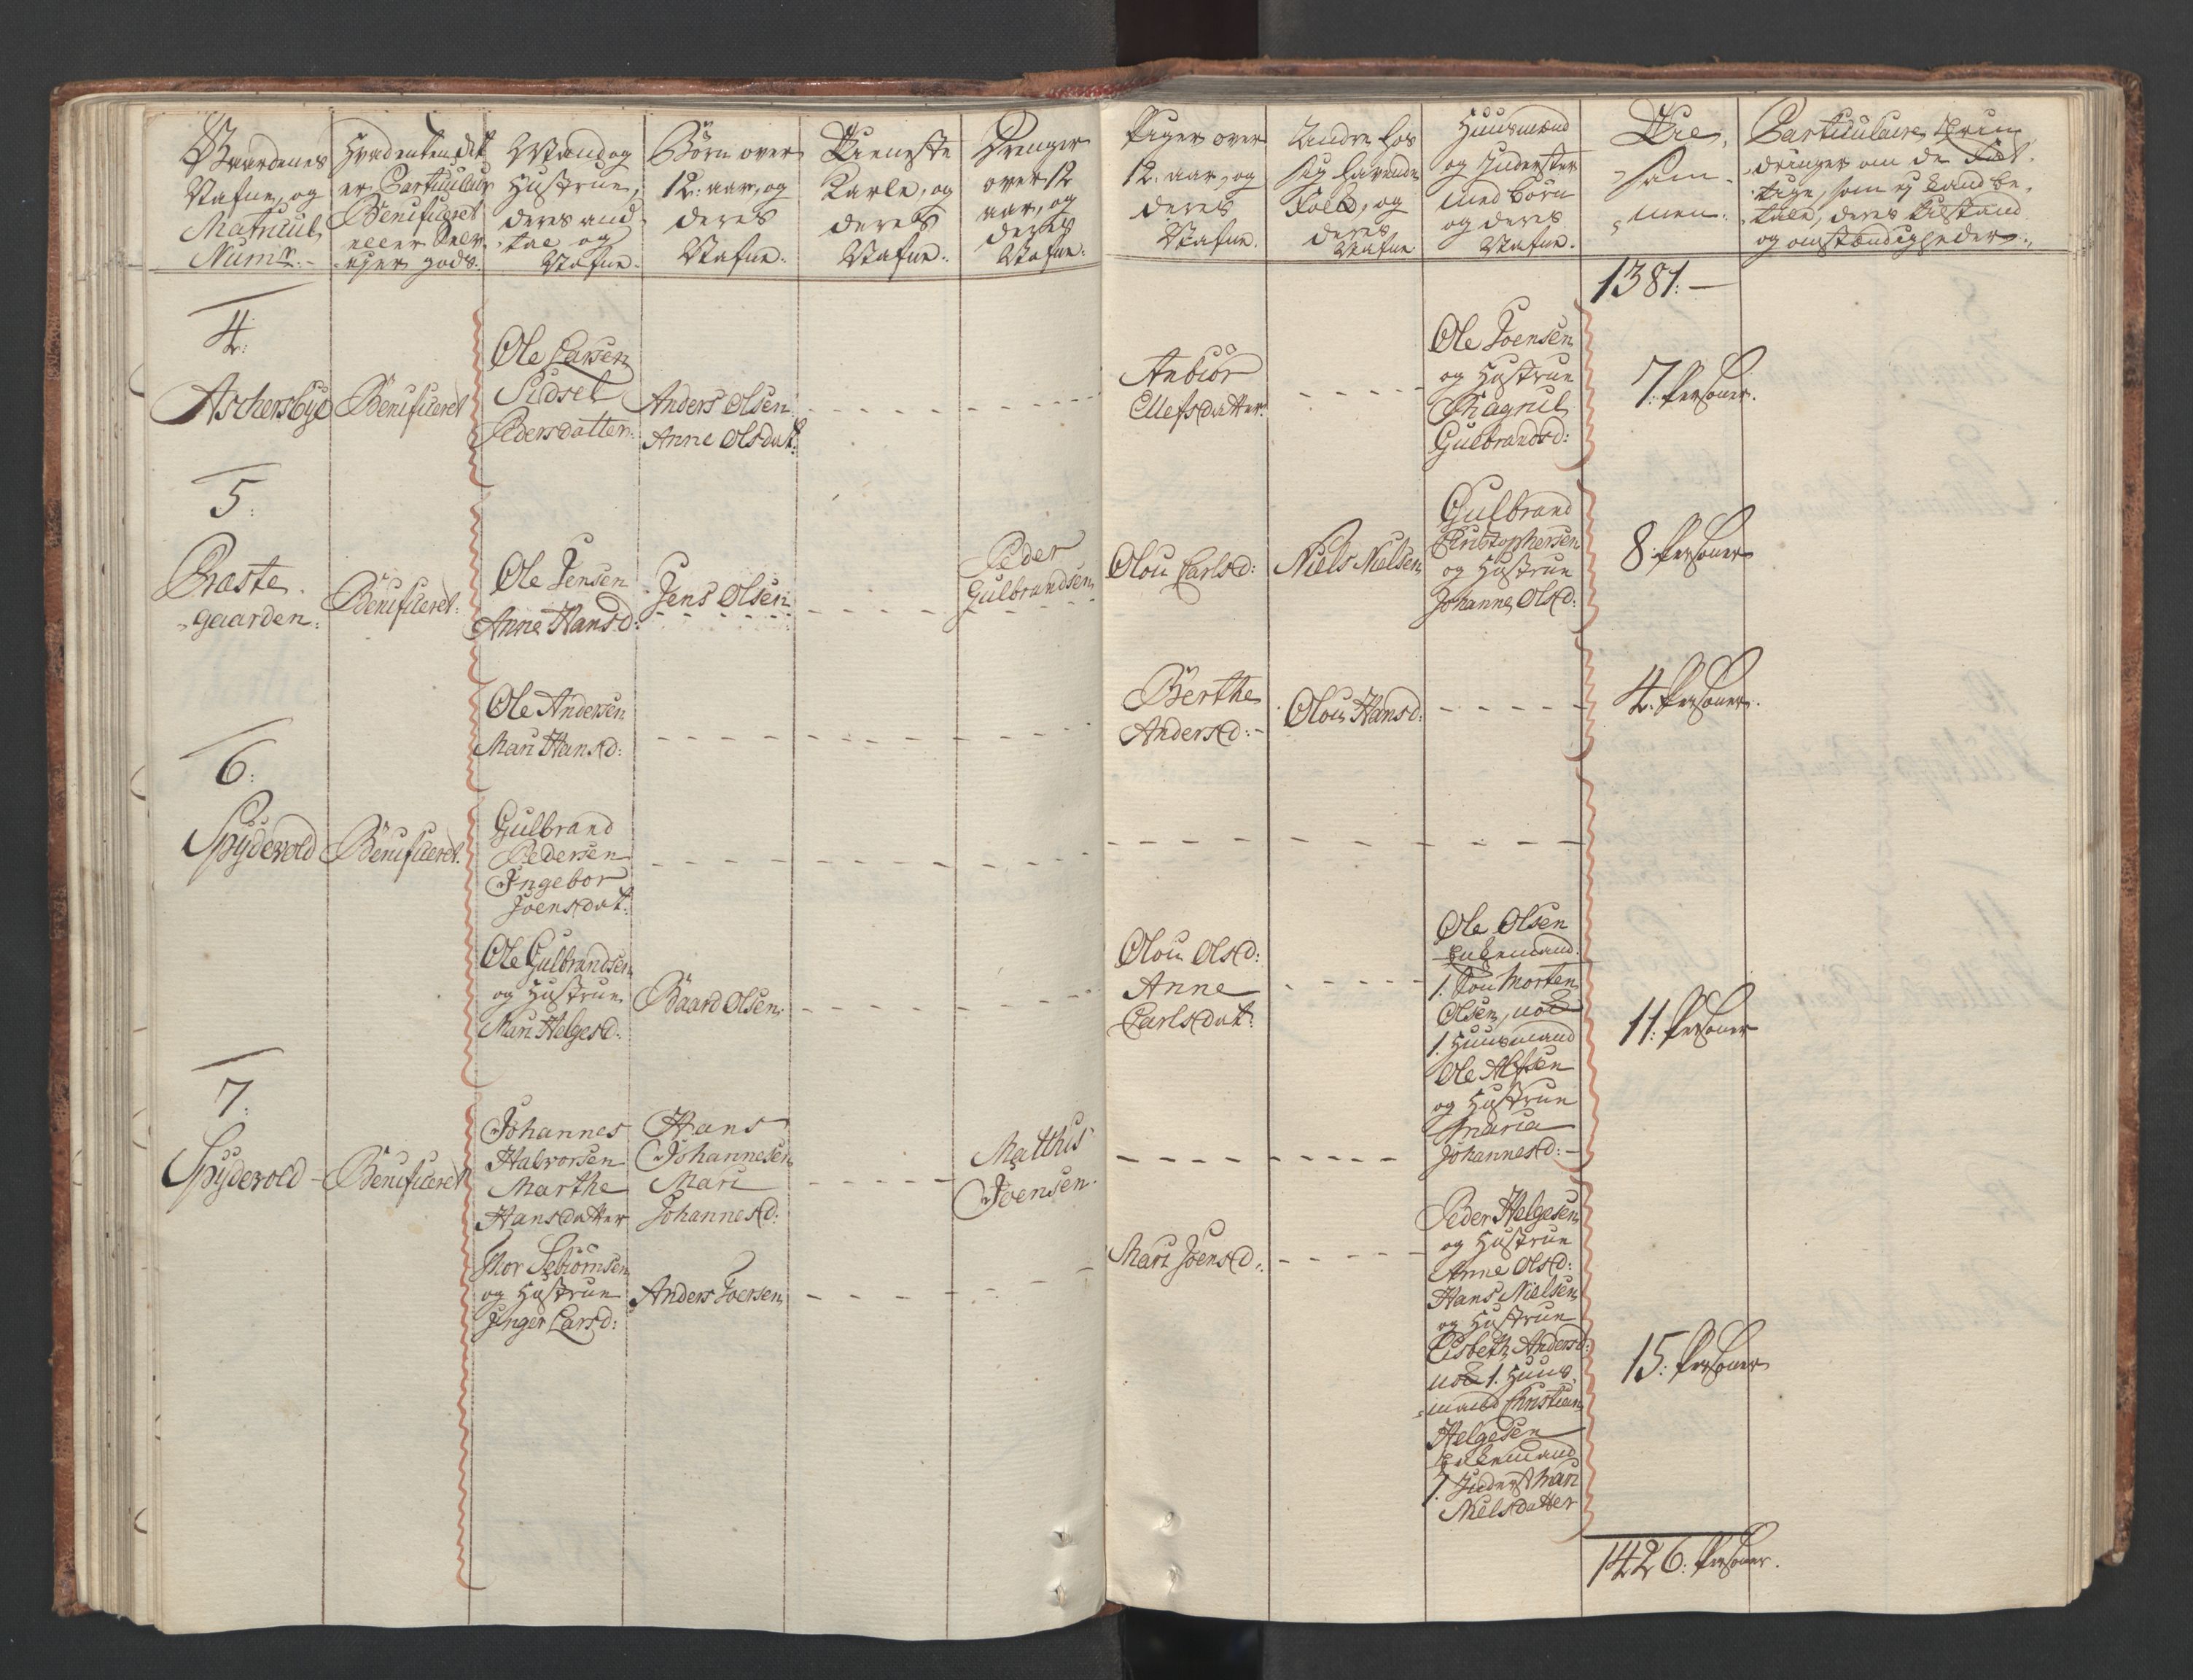 Gaardenes
Nafne, og
Matricul
Num:r
Hvad enten det
er Particulair
Beneficeret
eller Selv
ejer gods.
Mand og
Hustrue,
deres and
tal og
Nafne.
Börn over
12: aar, og
deres
Nafne.
Tieneste
Karle, og
deres
Nafne.
Drenger
over 12
aar, og
deres
Nafne.
Piger over
12: aar, og
deres
Nafne.
Andre hos
sig havende
Folk, og
deres
Nafne
Huusmænd
og Inderster
med Börn
og deres
Nafne.
Til,
sam-
men.
Particulaire Erin
dringer om de Fat-
tige, som ej kand be-
tale, deres Tilstand
og omstændigheder.
1381:
4:
Aschersbye
Beneficeret
Ole Larsen
Sidsel
Pedersdatter
Anders Olsen
Anne Olsdat:
Anbiör
Ellefsdatter
Ole Joensen
og Hustrue
Ragnil
Gulbrandsd:
7: Personer.
5:
Præste
gaarden:
Beneficeret:
Ole Jensen
Anne Hansd:
Jens Olsen
Peder
Gulbrandsen
Olou Carlsd:
Niels Nielsen
Gulbrand
Christophersen
og Hustrue
Johanne Olsd:
8: Personer
Ole Andersen
Mari Hansd:
Berthe
Andersd:
Olou Hansd:
4. Personer.
6:
Spydevold
Beneficeret.
Gulbrand
Pedersen
Ingebor
Joensdat:
Ole Gulbrandsen
og Hustrue
Mari Helgesd:
Baard Olsen
Olou Olsd:
Anne
Carlsdat:
Ole Olsen
Enkemand
1. Sön Morten
Olsen, nok
1. Huusmand
Ole Alfsen
og Hustrue
Maria
Johannesd:
11: Personer
7:
Spydevold
Beneficeret
Johannes
Halvorsen
Marthe
Hansdatter
Hans
Johannesen
Mari
Johannesd:
Matthis
Joensen.
Thor Sebiörnsen
og Hustrue
Inger Larsd:
Anders Toersen
Mari Joensd:
Peder Helgesen
og Hustrue
Anne Olsd:
Hans Nielsen
og Hustrue
Lisbeth Andersd:
nok 1. Huus
mand Christian
Helgesen
Enkemand
1. Inderst Mari
Nielsdatter
15: Personer
1426: Personer.